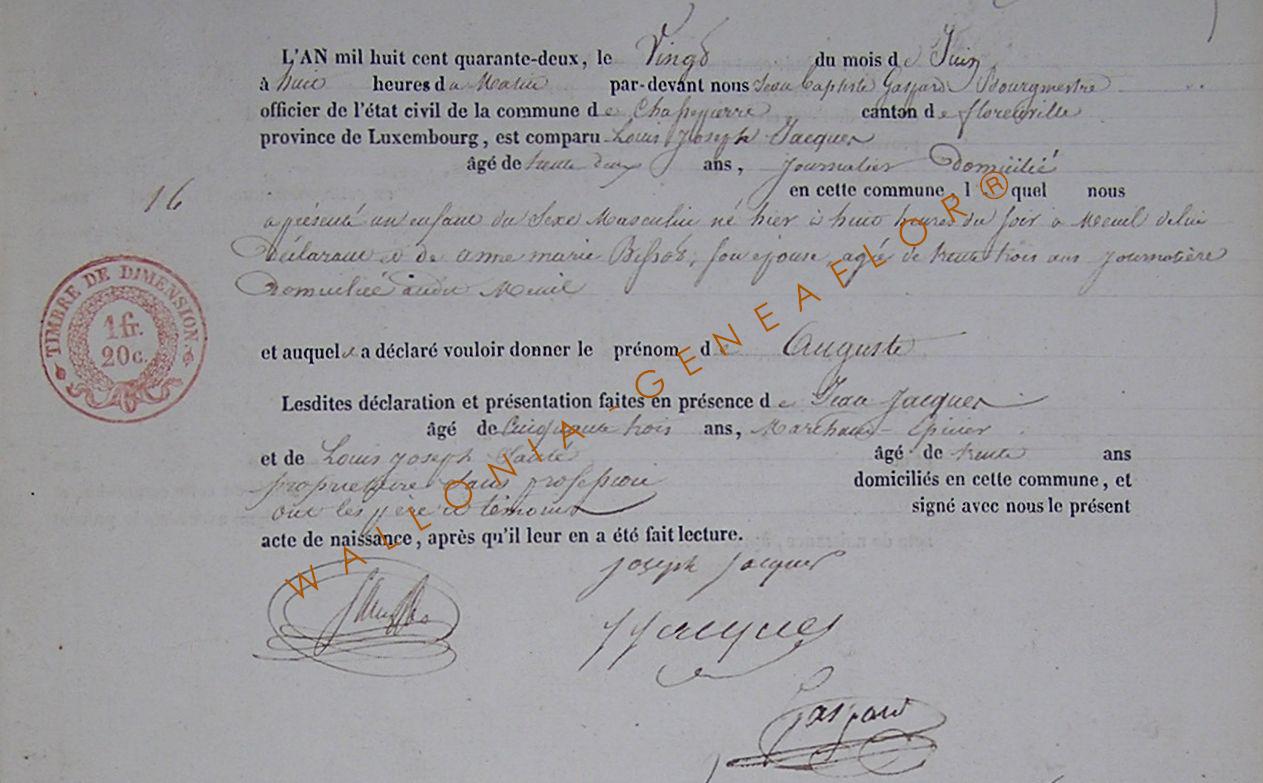 L'AN mil huit cent quarante-deux, le Vingt du mois de Juin
à huit heures du Matin par-devant nous Jean Baptiste Gaspard Bourgmestre
officier de l'état civil de la commune de Chassepierre canton de florenville
province de Luxembourg, est comparu Louis Joseph Jacques
âgé de trente deux ans, journalier Domicilié
en cette commune, l quel nous
16
a présenté un enfant du Sexe Masculin né hier à huit heures du soir à Menil de lui
Déclarant et de anne marie, son épouse, agée de trente trois ans journalière
Domiciliée audit Menil
TIMBRE DE DIMENSION
1 fr.
20 c.
et auquel a déclaré vouloir donner le prénom de Auguste
Lesdites déclaration et présentation faites en présence de Jean Jacques
âgé de Cinquante trois ans, Marchand Epicier
et de Louis Joseph âgé de trente ans
propriétaire sans profession domiciliés en cette commune, et
ont les père et témoins signé avec nous le présent
acte de naissance, après qu'il leur en a été fait lecture.
joseph jacques
J Jacques
Gaspard
WALLONIA-GENEAFLOR®